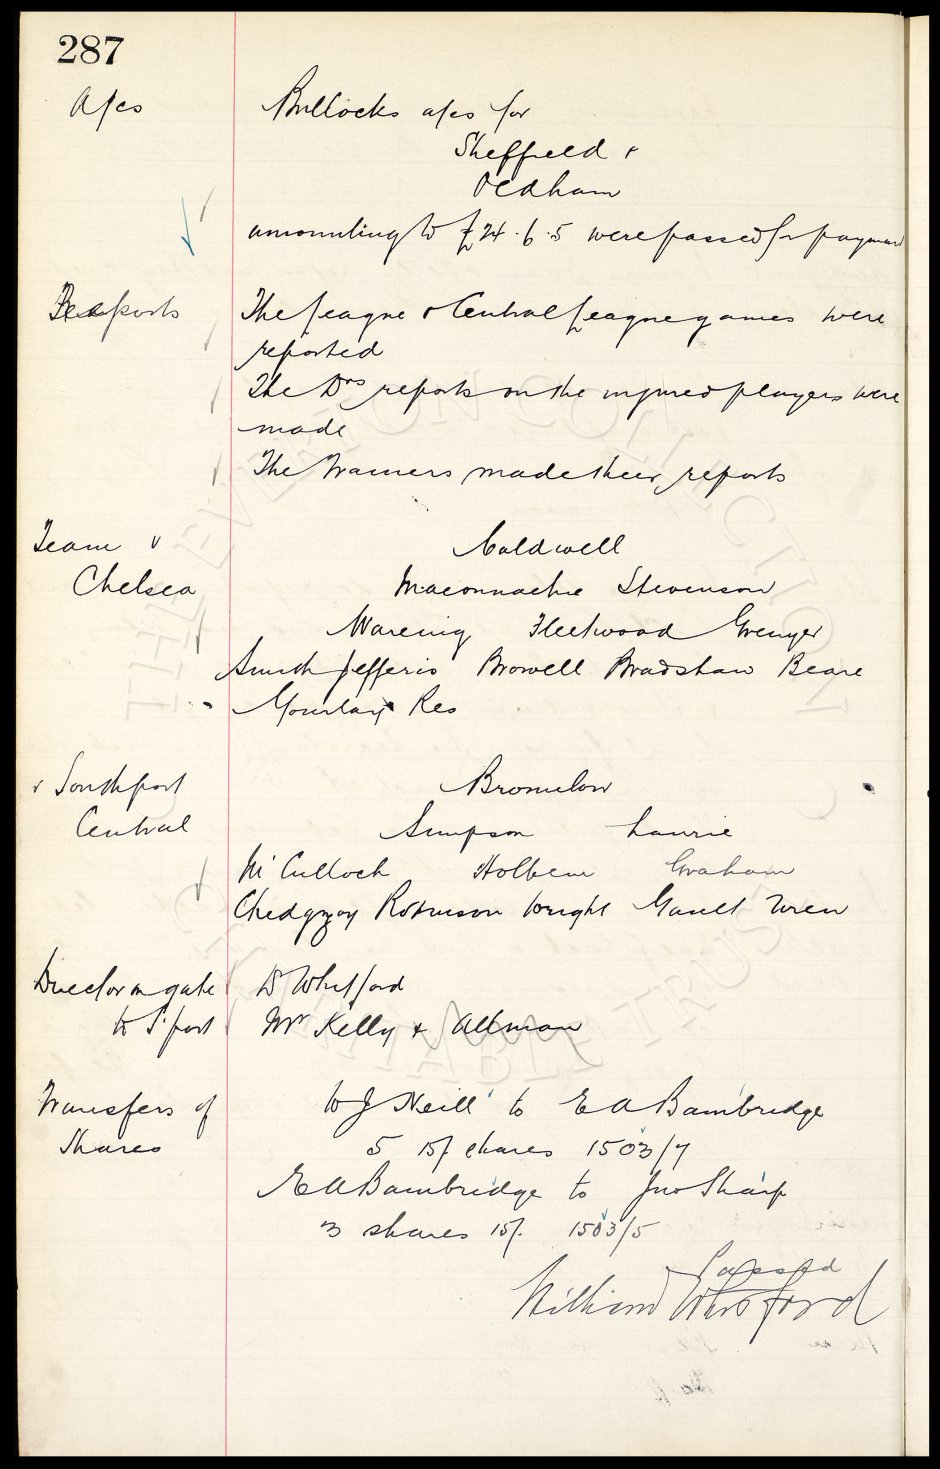 287
A/cs
Bullocks a/cs for
Sheffield &
Oldham
amounting to £24.6.5 were passed for payment
Reports
The League & Central League games were
reported
The Drs reports on the injured players were
made
The Trainers made their reports
Team v
Chelsea
Caldwell
Maconnachie Stevenson
Wareing Fleetwood Grenyer
Smith Jefferis Browell Bradshaw Beare
Gourlay Res
v Southport
Central
Bromilow
Simpson Laurie
McCulloch Holbem Graham
Chedgzoy Robinson Wright Gault Wren
Director on gate
Dr Whitford
to S'port
Mr Kelly & Allman
Transfers of
Shares
W J Neill to E A Bambridge
5 15/- shares 1503/7
E A Bambridge to Jno Sharp
3 shares 15/- 1503/5
Passed
William Whitford
THE EVERTON COLLECTION
CHARITABLE TRUST